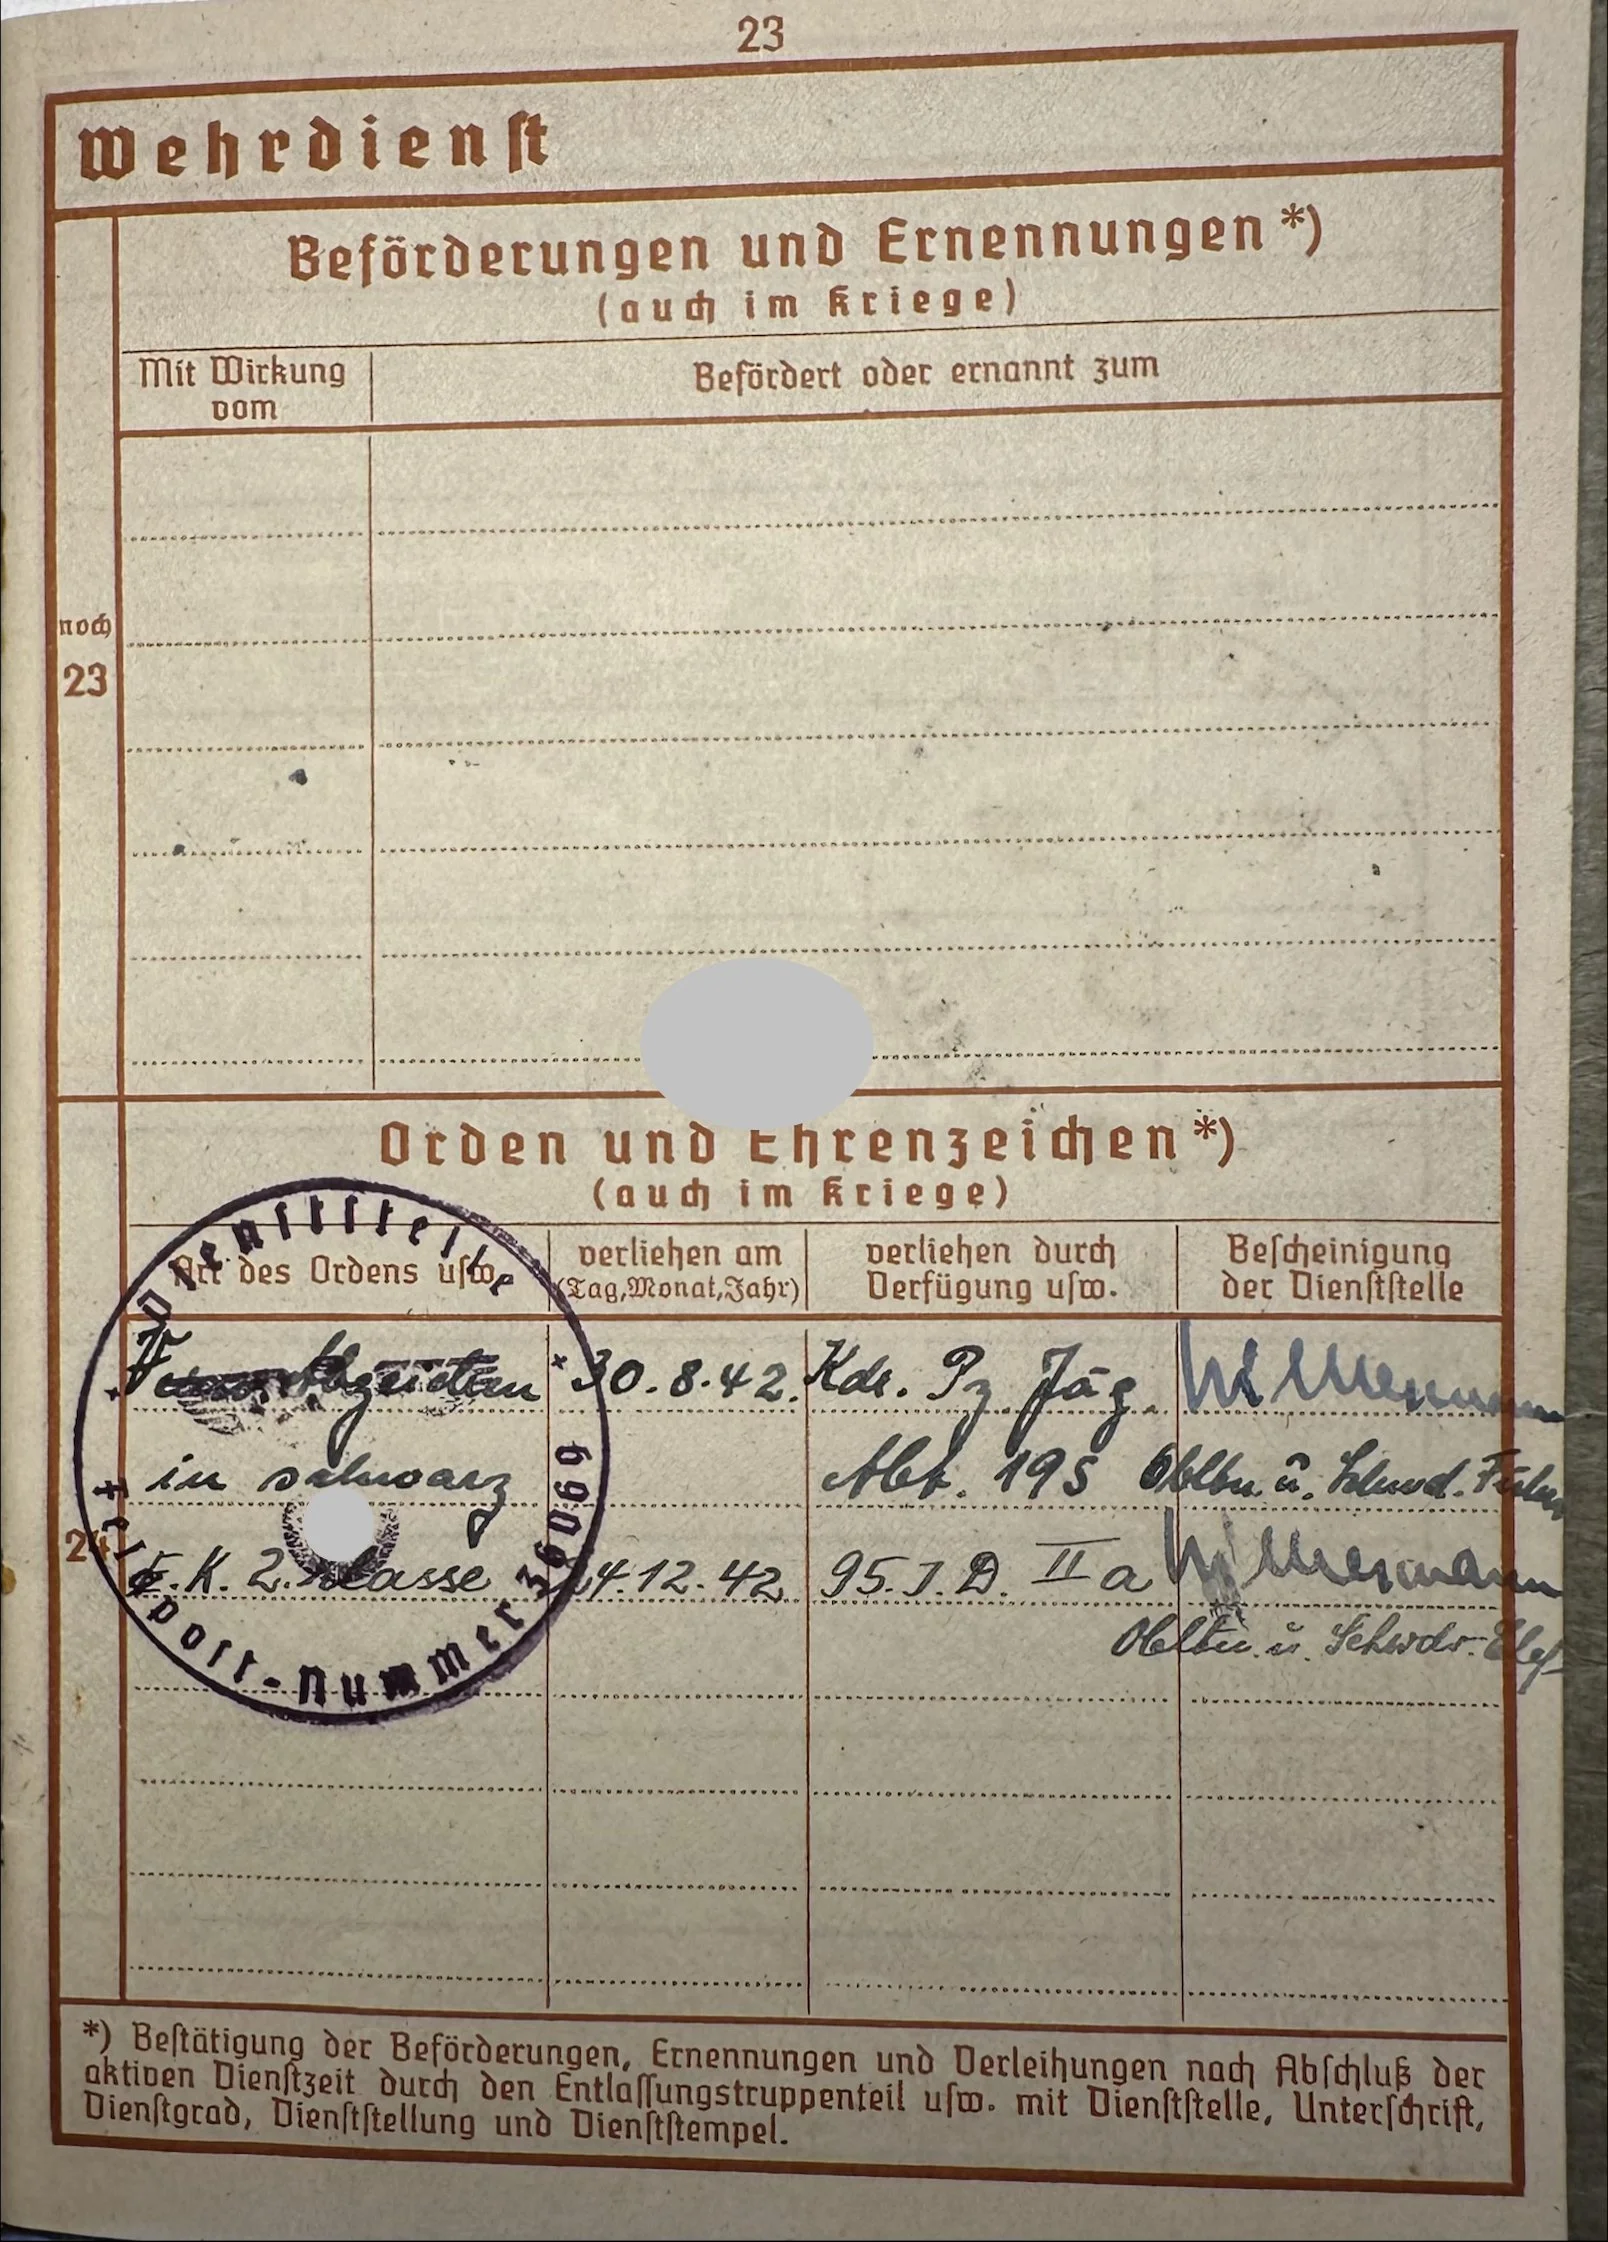 23
Wehrdienst
Beförderungen und Ernennungen *)
(auch im Kriege)
Mit Wirkung
vom
Befördert oder ernannt zum
noch
23
Orden und Ehrenzeichen *)
(auch im Kriege)
Art des Ordens usw.
verliehen am
(Tag, Monat, Jahr)
verliehen durch
Verfügung usw.
Bescheinigung
der Dienststelle
Abzeichen 30.8.42. Kdr. Pz Jäg.
in schwarz Abt. 195 Obltn. u. Schwd.
24
E.K. 2. Klasse 4.12.42 95. I. D. II a
Obltn. u. Schwdr.
Dienststelle
Feldpost-Nummer 36069
*) Bestätigung der Beförderungen, Ernennungen und Verleihungen nach Abschluß der
aktiven Dienstzeit durch den Entlassungstruppenteil usw. mit Dienststelle, Unterschrift,
Dienstgrad, Dienststellung und Dienststempel.